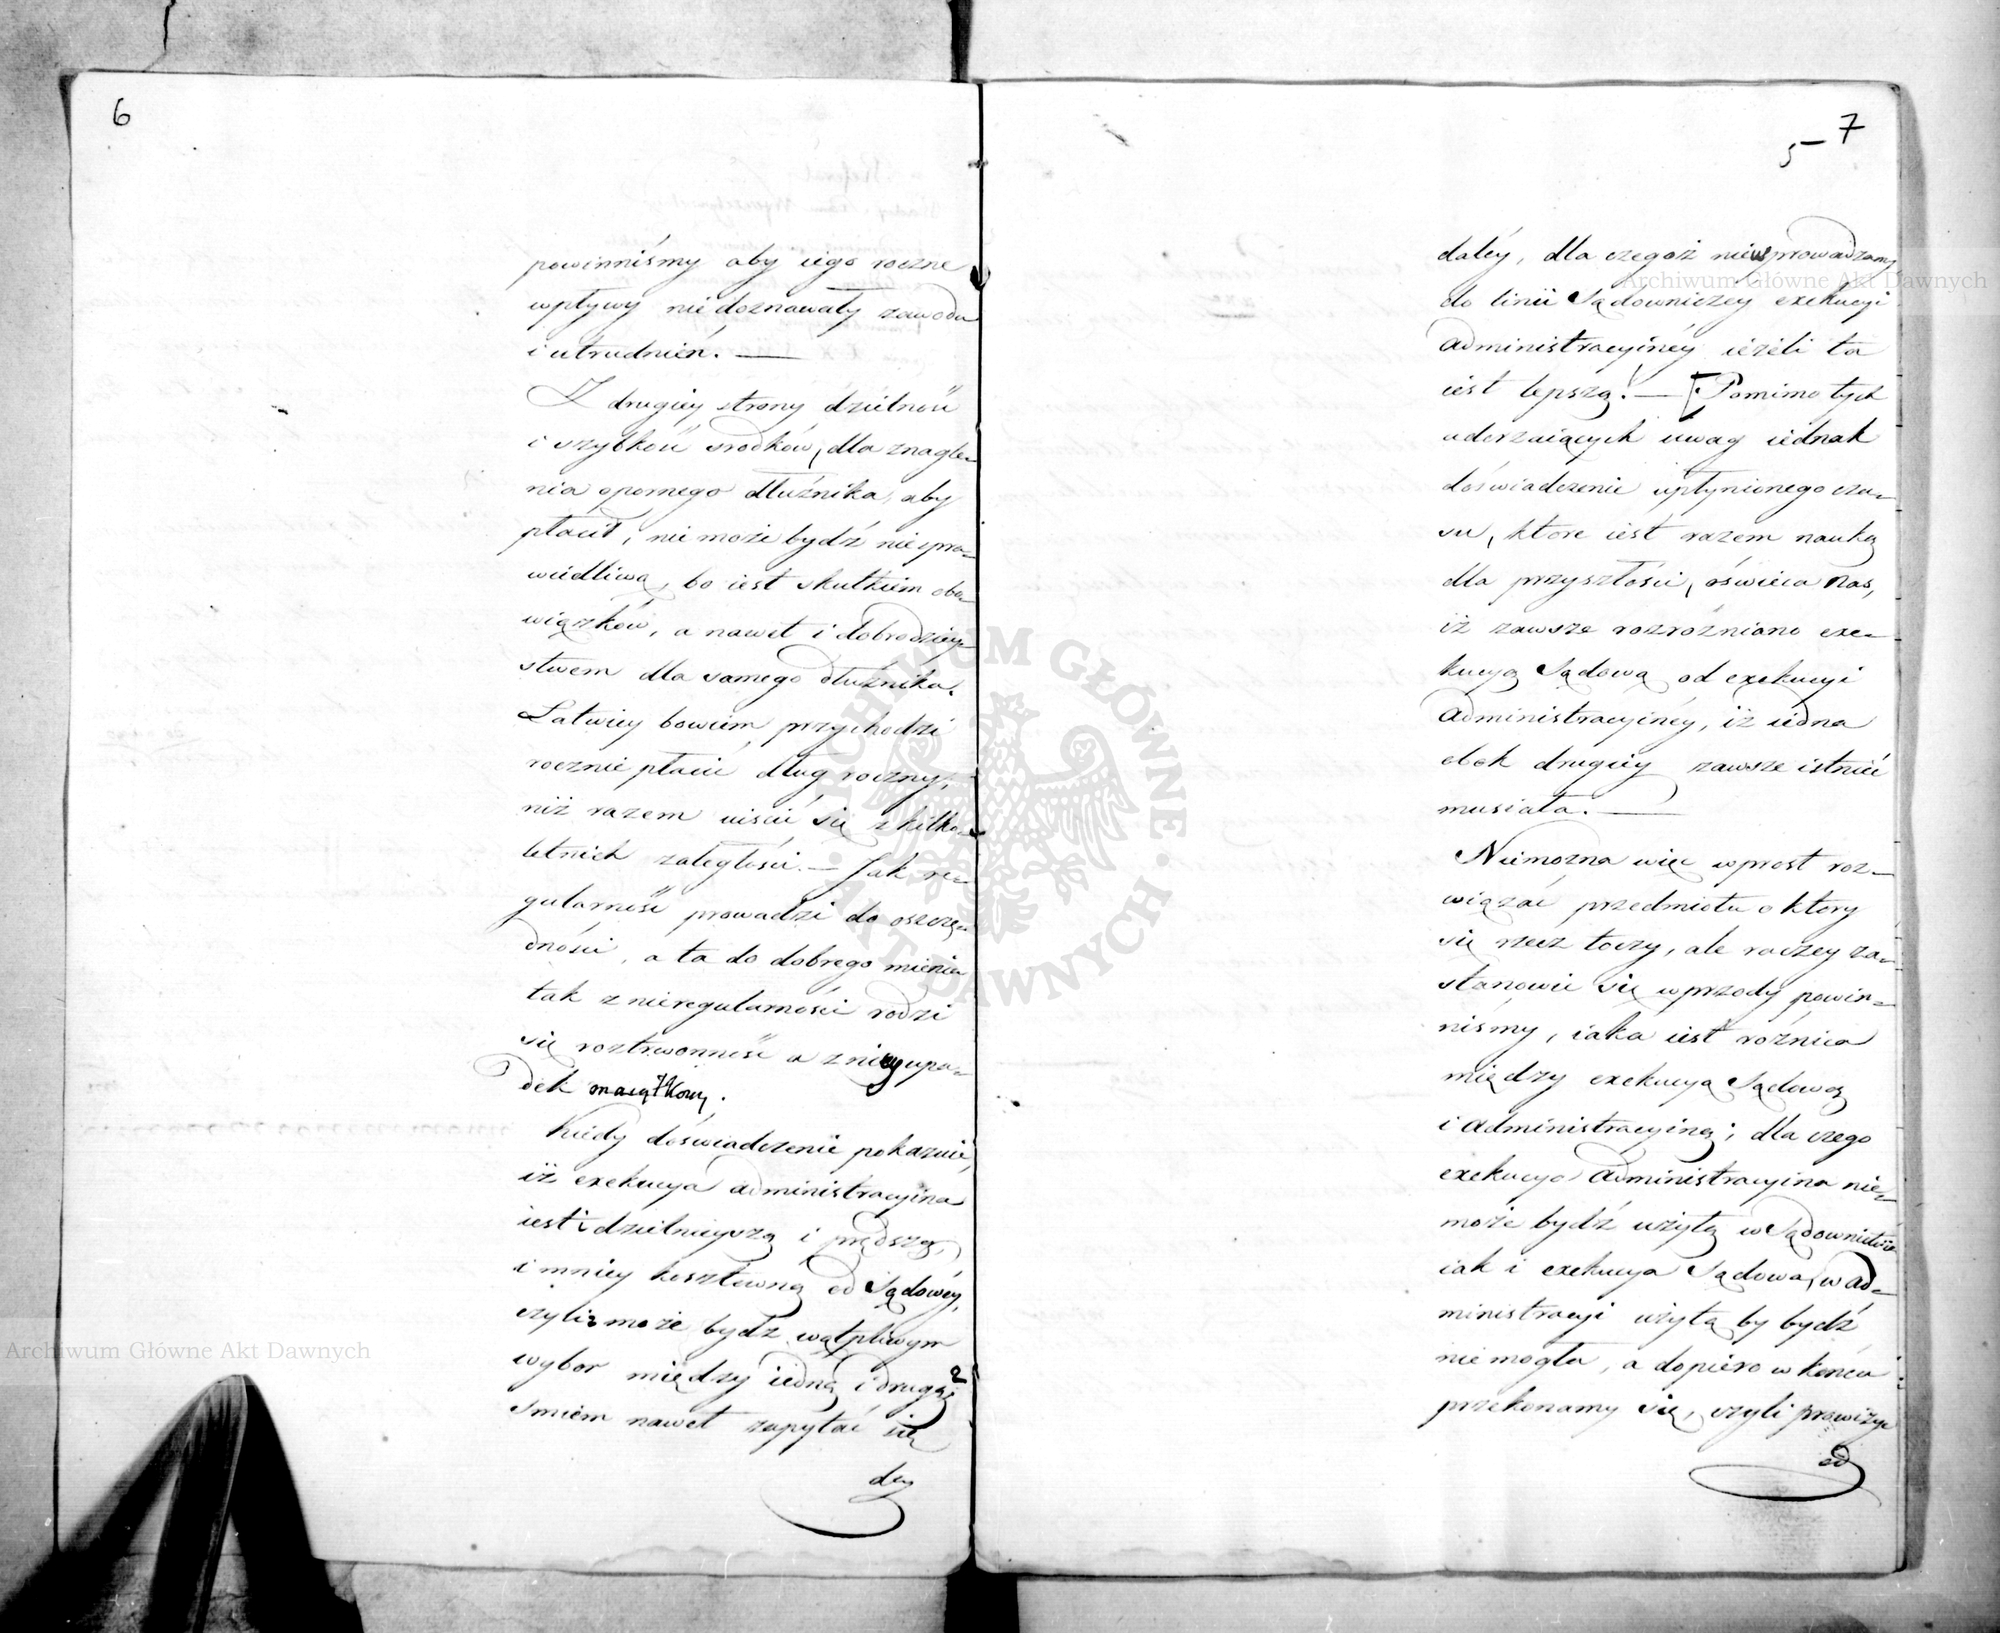 6
powinniśmy aby iego roczne
wpływy niedoznawały zawodu
i utrudnień. —
Z drugiey strony dzielność
i szybkość srodków, dla znagle=
nia opornego dłużnika, aby
płacił, nie może bydź niespra=
wiedliwą, bo iest skutkiem obo=
wiązków, a nawet i dobrodziey=
stwem dla samego dłużnika.
Łatwiey bowiem przychodzi
rocznie płacić dług roczny,
niż razem uiścić się z kilko=
letnich zaległości. — Jak re=
gularność prowadzi do oszczę=
dności, a ta do dobrego mienia
tak z nieregularności rodzi
się roztrwonność a z niey upa=
dek maiątkowy.
Kiedy doświadczenie pokazuie,
iż exekucya administracyina
iest dzielnieyszą i prędszą,
i mniey kosztowną od Sądowéy,
czyliż może bydź wątpliwym
wybor między iedną i drugą?
Smiem nawet zapytać się
dey
5 — 7
daléy, dla czegoż niewprowadzamy
do linii Sądowniczey exekucyi
Administracyinéy ieżeli ta
iest lepszą! — [Pomimo tych
uderzaiących uwag iednak
doświadczenie upłynionego cza=
su, ktore iest razem nauką
dla przyszłości, oświeca nas,
iż zawsze rozrożniano exe=
kucyą Sądową od exekucyi
Administracyinéy, iż iedna
obok drugiey zawsze istnieć
musiała. —
Niemożna więc wprost roz=
wiązać przedmiotu o ktory
się rzecz toczy, ale raczey za=
stanowić się wprzody powin=
niśmy, iaka iest rożnica
między exekucyą Sądową
i administracyiną; dla czego
exekucya Administracyina nie=
może bydź użytą w Sądownictwie
iak i exekucya Sądowa, w ad=
ministracyi użytą by bydź
niemogła, a dopiero w końcu
przekonamy się, czyli prowizye
od
Archiwum Główne Akt Dawnych
Archiwum Główne Akt Dawnych
ARCHIWUM GŁÓWNE · AKT DAWNYCH ·